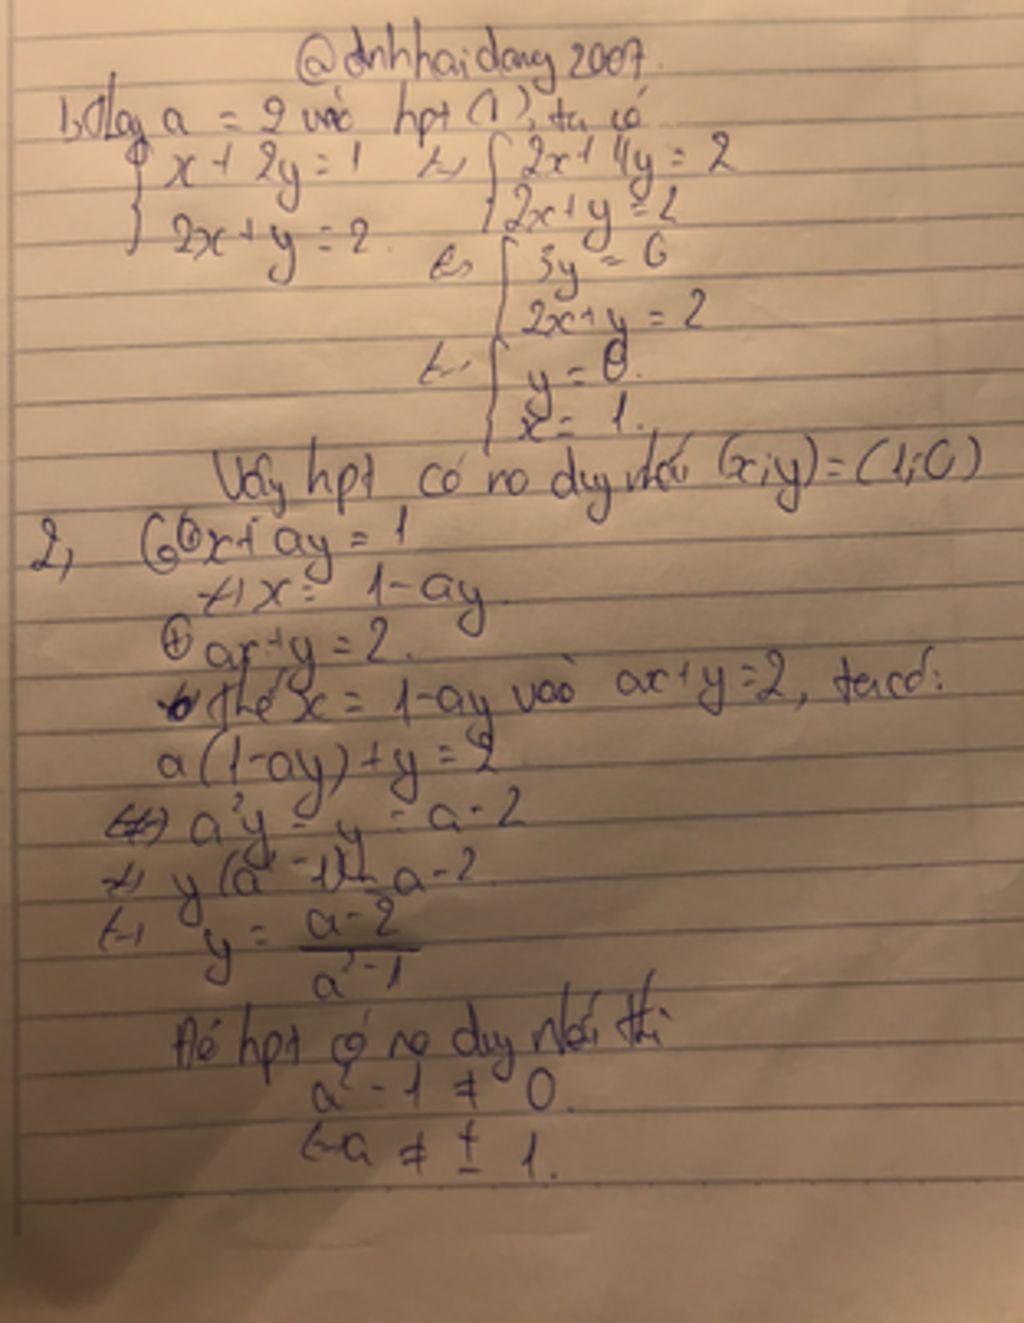 @dnhhaidang2007.
1, Thay a = 2 vào hpt (1), ta có
x + 2y = 1 <=> 2x + 4y = 2
2x + y = 2. 2x + y = 2
<=> 3y = 0
2x + y = 2
<=> y = 0.
x = 1.
Vậy hpt có no duy nhất (x;y) = (1;0)
2, Có ⊕ x + ay = 1
<=> x = 1 - ay
⊕ ax + y = 2.
Thế x = 1 - ay vào ax + y = 2, ta có:
a(1 - ay) + y = 2
<=> a²y - y = a - 2
<=> y(a² - 1) = a - 2
<=> y = \frac{a - 2}{a² - 1}
Để hpt có no duy nhất thì
a² - 1 ≠ 0.
<=> a ≠ ± 1.